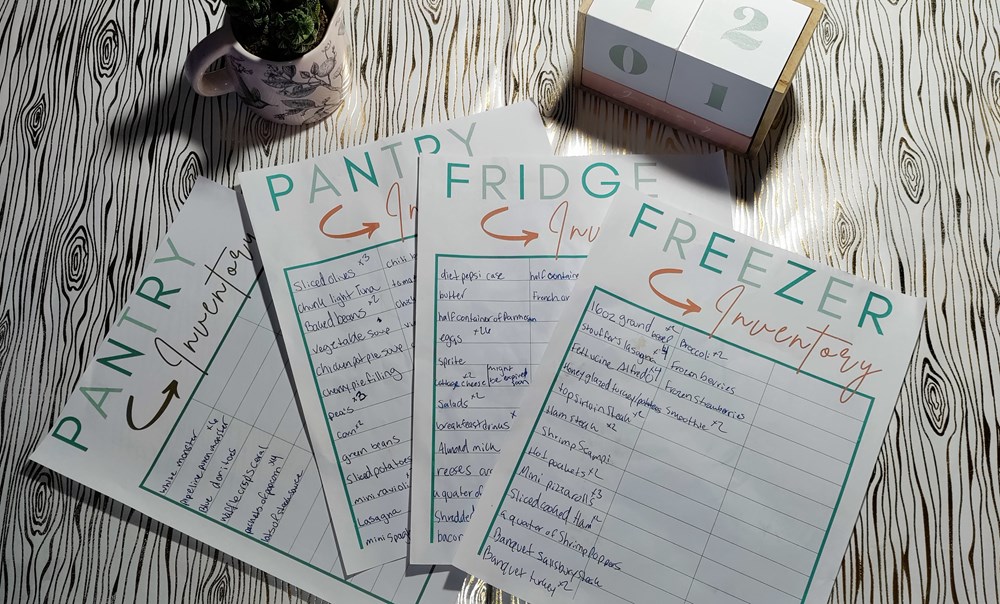 12
01 1
PANTRY
Inventory
white monster
pipeline punch monster x6
Blue doritos
waffle crisps Ceral
packets of popcorn x4
PANTRY
In
Sliced olives x3
chunk light Tuna
Baked beans x2
vegetable soup
chicken pot pie soup
cherry pie filling
peas x3
corn x2
green beans
sliced potatoes
mini ravioli
Lasagna
mini spag
FRIDGE
Inv
diet pepsi case
half containe
butter
French on
half container of Parmesan
eggs x16
sprite
cottage cheese x2
might be expired soon
Salads x2
breakfast drinks x
Almond milk
reeses
a quater of
Shredded
bacon
FREEZER
Inventory
16oz ground beef x2
Broccoli x2
Stouffers lasagna x4
Frozen berries
Fettucine Alfredo x4
Frozen Strawberries
Honey glazed turkey/potatoes
Smoothie x2
top sirloin Steak x2
Ham steak x2
Shrimp Scampi
Hot pockets x2
Mini pizza rolls x3
Sliced cooked Ham x2
a quater of Shrimp Poppers
Banquet Salisbury steak
Banquet turkey x2